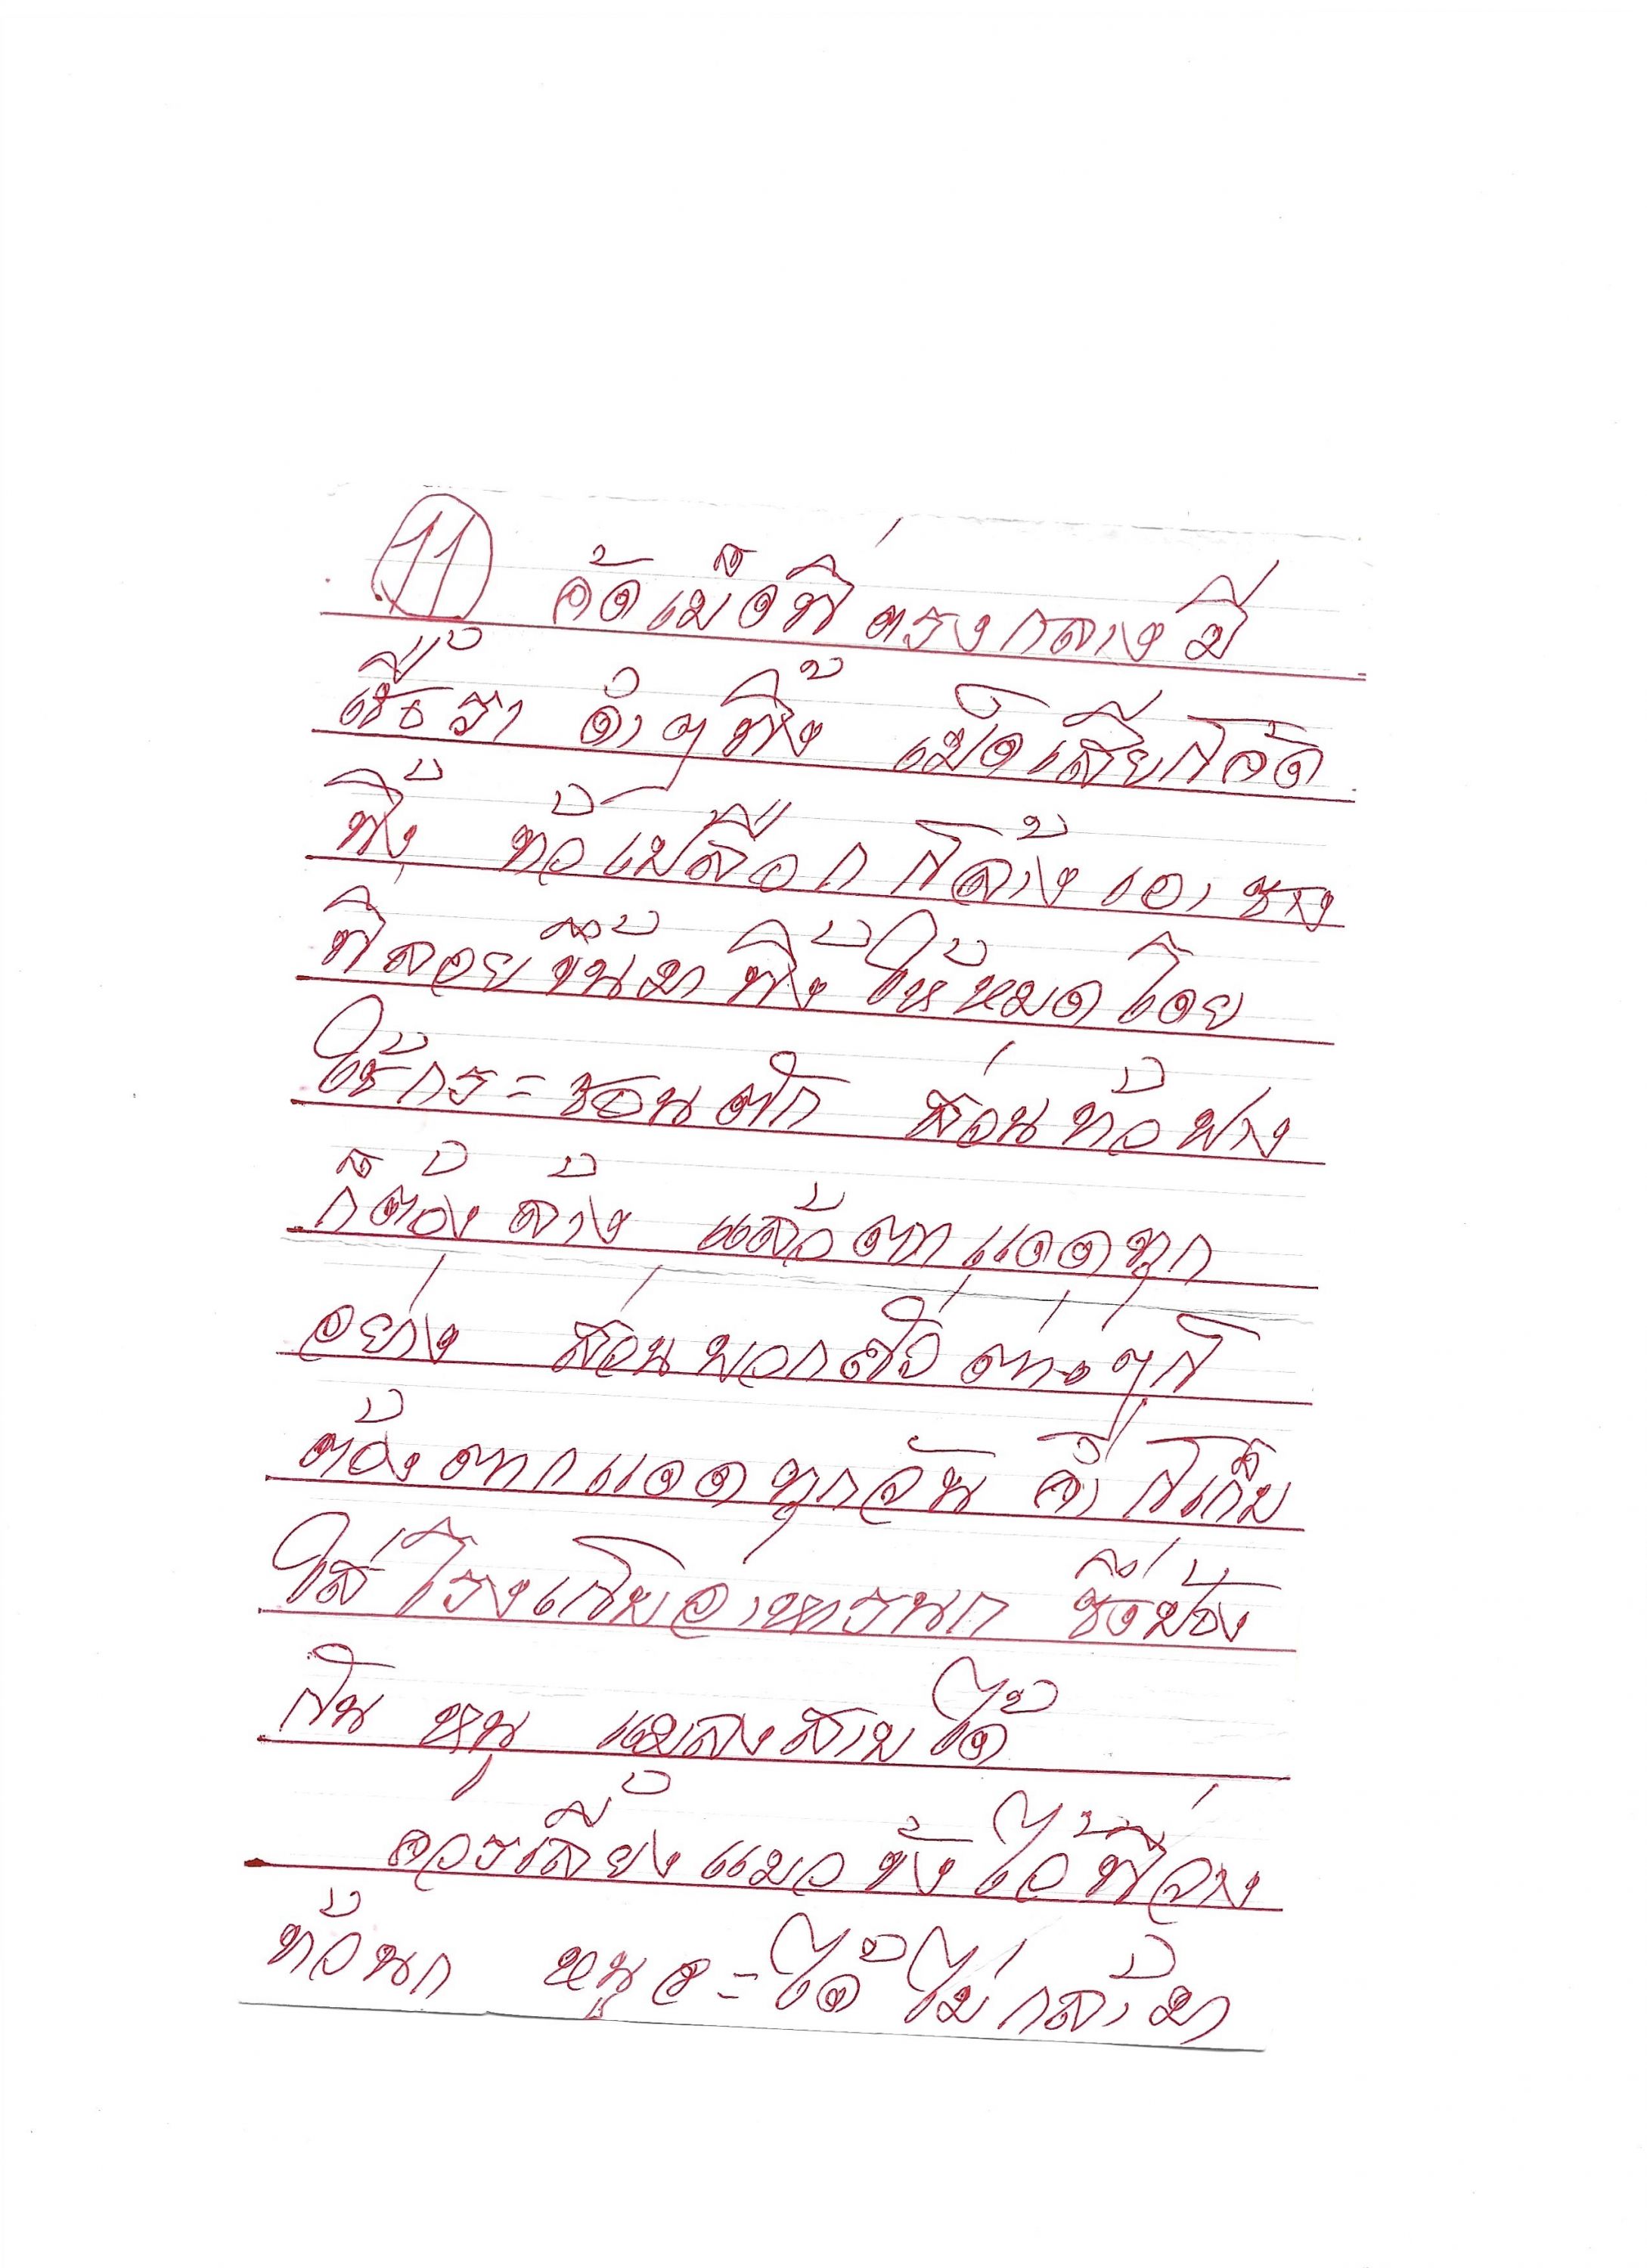 11 คัดเม็ดที่ตรงกลางมี
เชื้อรา ดำๆทิ้ง เม็ดเสียก็คัด
ทิ้ง ถั่วเปลือก ก็ล้าง เอา
ที่ลอยขึ้นมา ทิ้งให้หมด โดย
ใช้กระชอนตัก ส่วนถั่ว
ก็ต้องล้าง แล้วตากแดดทุก
อย่าง ส่วนพวกถั่วต่างๆก็
ต้องตากแดดทุกวัน ค่ำก็เก็บ
ใส่โรงเก็บอาหารนก ซึ่งป้อง
กัน หนู แมลงสาบ ได้
ควรเลี้ยงแมวขังไว้ที่
หนูจะได้ไม่กล้ามา